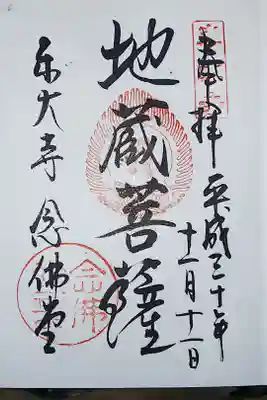 奉拝
平成三十年
十一月十一日
地蔵菩薩
東大寺 念佛堂